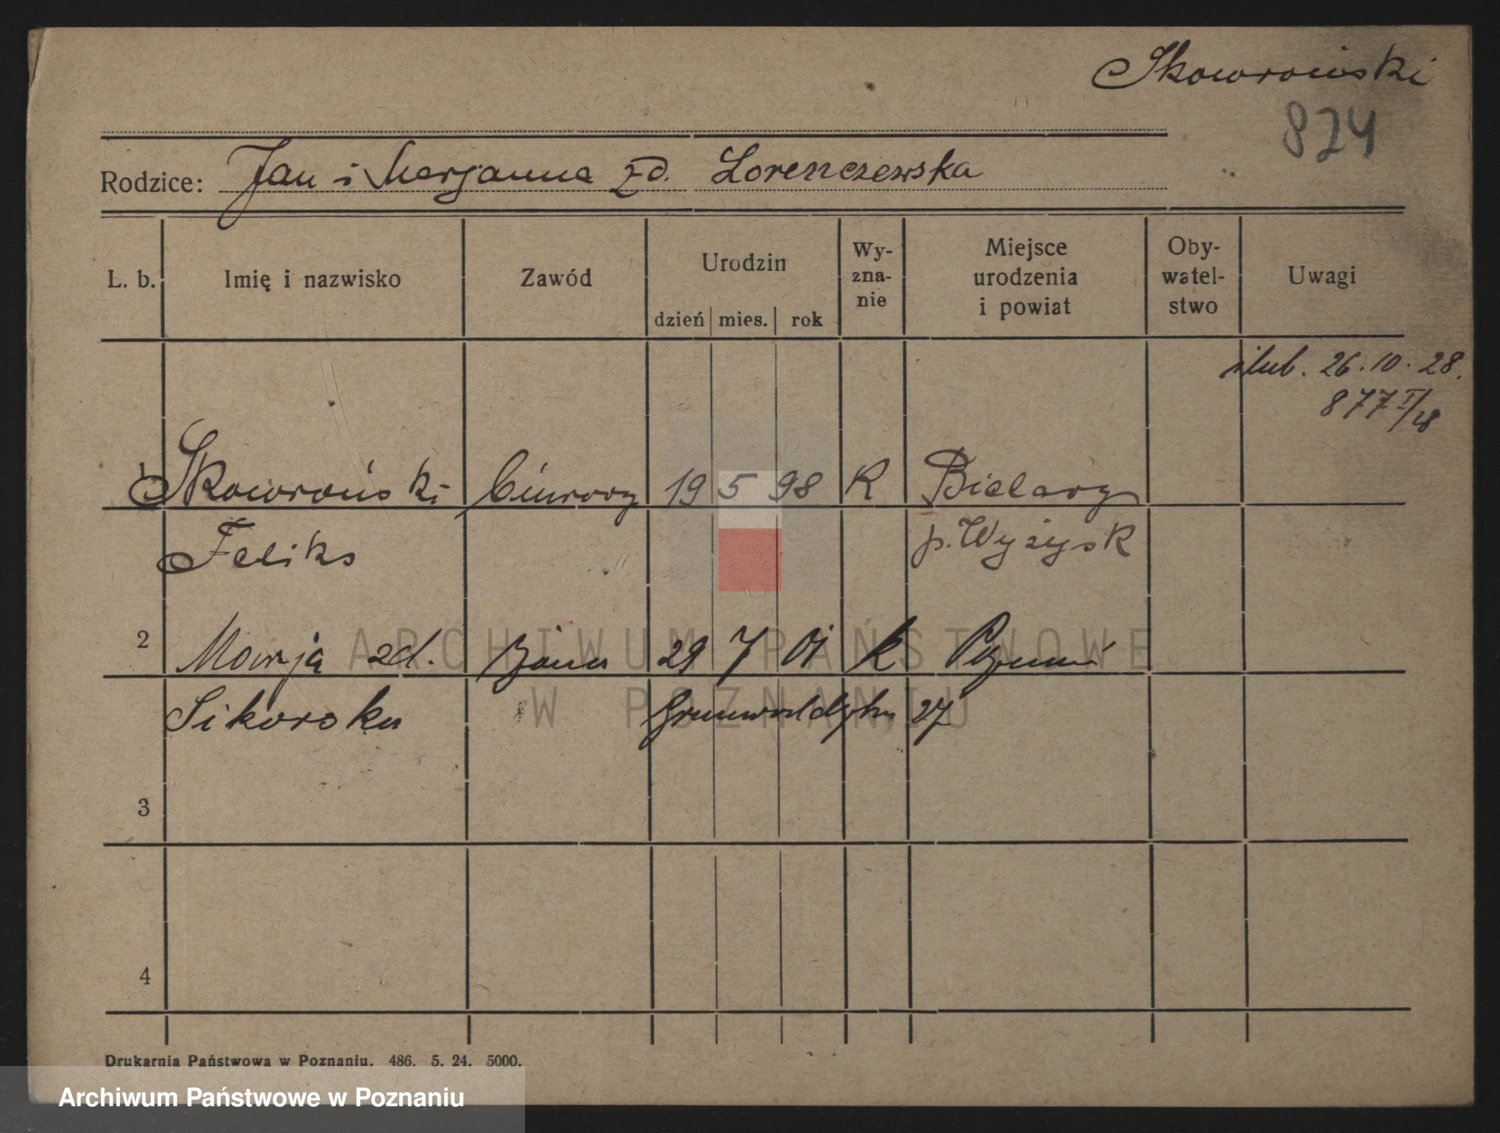 Skowroński
824
Rodzice: Jan i Marjanna zd. Lorenczewska
L. b. Imię i nazwisko Zawód Urodzin dzień mies. rok Wy-zna-nie Miejsce urodzenia i powiat Oby-watel-stwo Uwagi
ślub. 26.10.28.
877 II/28
1 Skowroński biurowy 19 5 98 K Bielawy
Feliks p. Wyżysk
2 Marja zd. 29 7 01 k Poznań
Sikorska Grunwaldzka 27
3
4
Drukarnia Państwowa w Poznaniu. 486. 5. 24. 5000.
ARCHIWUM PAŃSTWOWE
W POZNANIU
Archiwum Państwowe w Poznaniu